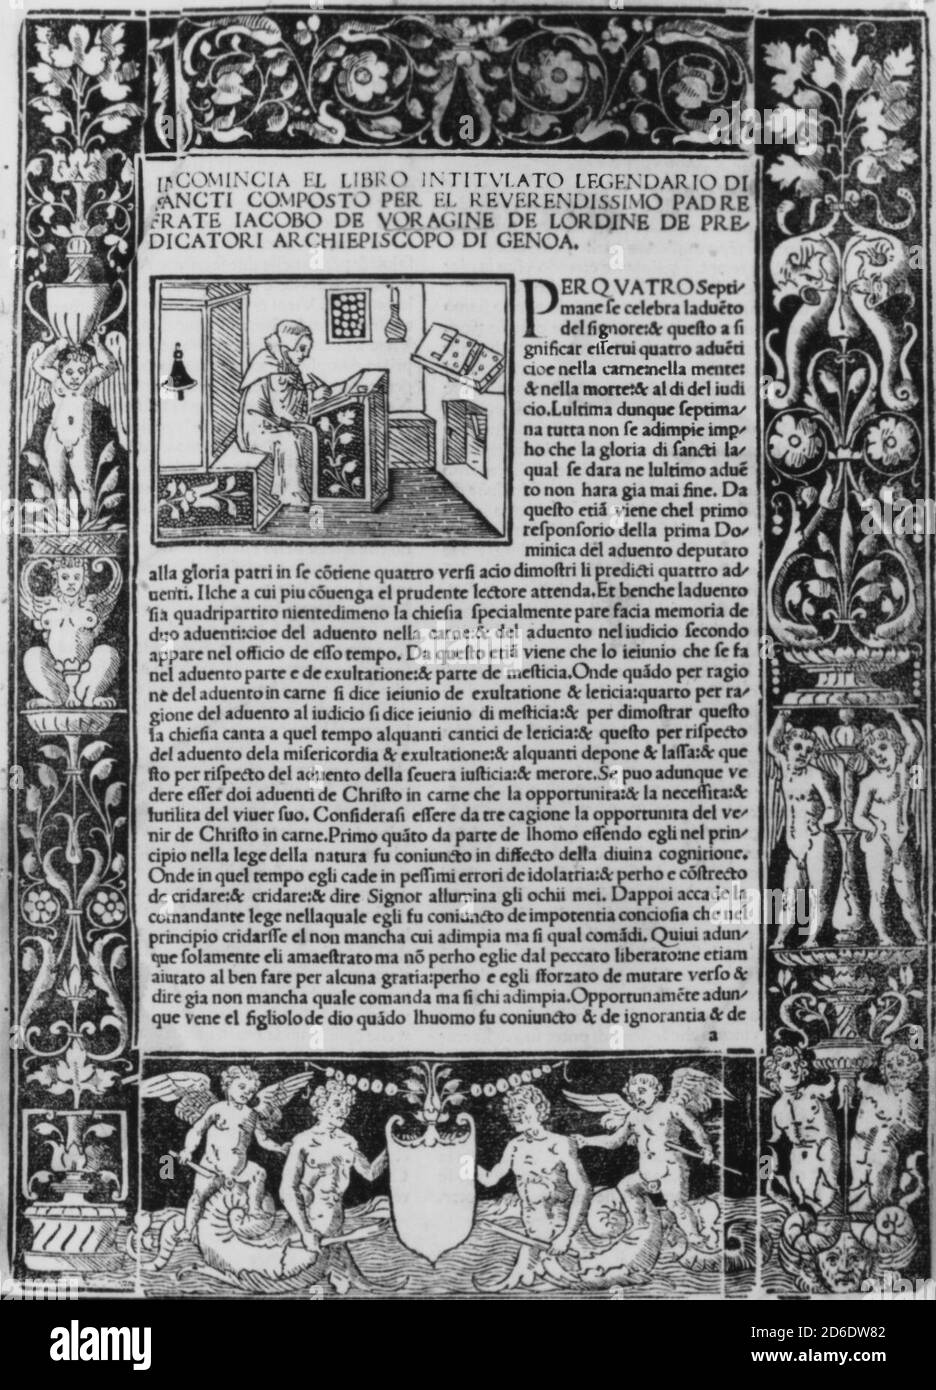 INCOMINCIA EL LIBRO INTITVLATO LEGENDARIO DI
SANCTI COMPOSTO PER EL REVERENDISSIMO PADRE
FRATE IACOBO DE VORAGINE DE LORDINE DE PRE/
DICATORI ARCHIEPISCOPO DI GENOA.
PER QVATRO Septi/
mane se celebra laduẽto
del signore:& questo a si
gnificar esserui quatro aduẽti
cioe nella carne:nella mente:
& nella morte:& al di del iudi
cio.Lultima dunque septima/
na tutta non se adimpie imp/
ho che la gloria di sancti la/
qual se dara ne lultimo aduẽ
to non hara gia mai fine. Da
questo etiã viene chel primo
responsorio della prima Do/
minica del aduento deputato
alla gloria patri in se cõtiene quattro versi acio dimostri li predicti quattro ad/
uenti. Ilche a cui piu cõuenga el prudente lectore attenda. Et benche laduento
sia quadripartito nientedimeno la chiesia specialmente pare facia memoria de
duo aduenti:cioe del aduento nella carne:& del aduento nel iudicio secondo
appare nel officio de esso tempo. Da questo etiã viene che lo ieiunio che se fa
nel aduento parte e de exultatione:& parte de mesticia.Onde quãdo per ragio
ne del aduento in carne si dice ieiunio de exultatione & leticia:quarto per ra/
gione del aduento al iudicio si dice ieiunio di mesticia:& per dimostrar questo
la chiesia canta a quel tempo alquanti cantici de leticia:& questo per rispecto
del aduento dela misericordia & exultatione:& alquanti depone & lassa:& que
sto per rispecto del aduento della seuera iusticia:& merore.Se puo adunque ve
dere esser doi aduenti de Christo in carne che la opportunita:& la necessita:&
lutilita del viuer suo. Considerasi essere da tre cagione la opportunita del ve/
nir de Christo in carne.Primo quãto da parte de lhomo essendo egli nel prin/
cipio nella lege della natura fu coniuncto in diffecto della diuina cognitione.
Onde in quel tempo egli cade in pessimi errori de idolatria:& perho e cõstrecto
de cridare:& cridare:& dire Signor allumina gli ochii mei. Dappoi accade la
comandante lege nellaquale egli fu coniuncto de impotentia conciosia che nel
principio cridarsse el non mancha cui adimpia ma si qual comãdi. Quiui adun/
que solamente eli amaestrato ma nõ perho eglie dal peccato liberato:ne etiam
aiutato al ben fare per alcuna gratia:perho e egli sforzato de mutare verso &
dire gia non mancha quale comanda ma si chi adimpia.Opportunamẽte adun/
que vene el figliolo de dio quãdo lhuomo fu coniuncto & de ignorantia & de
a
alamy
Image ID: 2D6DW82
www.alamy.com